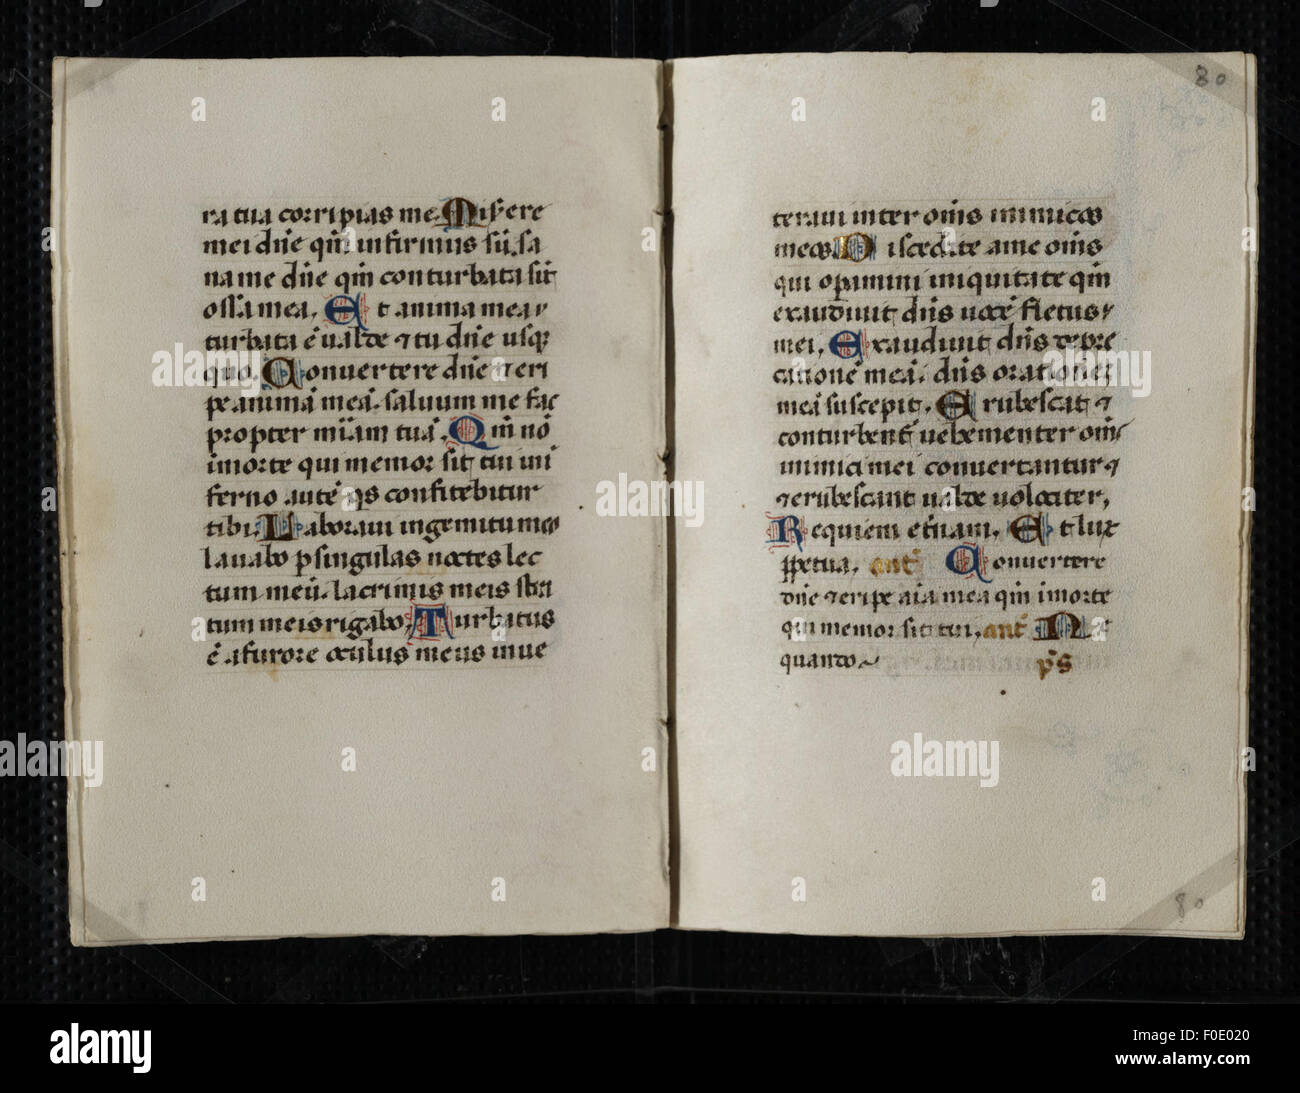 ra tua corripias me. Misere
mei dñe qm̃ infirmus sũ. sa
na me dñe qm̃ conturbata sũt
ossa mea. Et anima mea
turbata ẽ ualde ⁊ tu dñe usq
quo. Conuertere dñe ⁊ eri
pe animã meã. saluum me fac
propter miãm tuã. Qm̃ nõ
ĩ morte qui memor sit tui ĩ ĩ
ferno autẽ qs confitebitur
tibi. Laboraui in gemitu meo
lauabo p singulas noctes lec
tum meũ. lacrimis meis stra
tum meis rigabo. Turbatus
ẽ a furore oculus meus inue
80
teraui inter oms̃ inimicos
meos. Discedite a me oms̃
qui opamini iniquitate qm̃
exaudiuit dñs uocẽ fletus
mei. Exaudiuit dñs depre
cationẽ meã. dñs orationez
meã suscepit. Erubescat ⁊
conturbent uehementer oms̃
inimici mei conuertantur ⁊
⁊ erubescant ualde uelociter.
Requiem etñam. Et lux
ppetua. ant̃ Conuertere
dñe ⁊ eripe aĩa mea qm̃ ĩ morte
qui memor sit tui. ant̃ Ne
quando ps̃
80
alamy
a
alamy
Image ID: F0E020
www.alamy.com